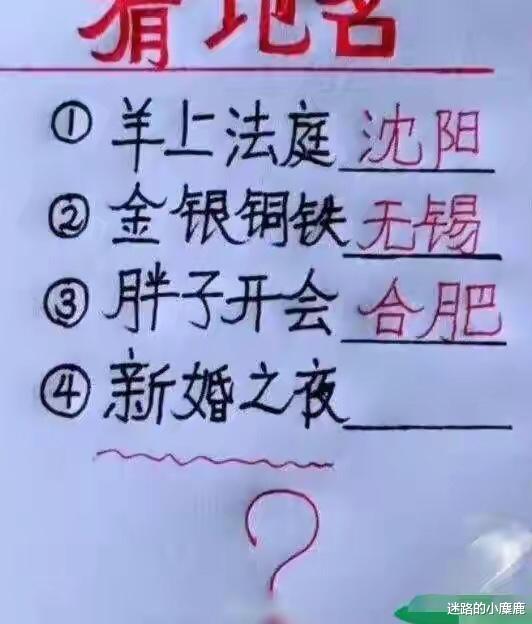 猜地名
① 羊上法庭 沈阳
② 金银铜铁 无锡
③ 胖子开会 合肥
④ 新婚之夜
?
迷路的小麋鹿